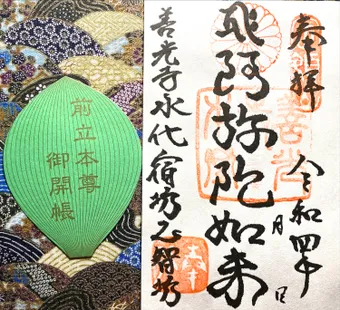 前立本尊
御開帳
奉拝
令和四年
月
日
阿弥陀如来
善光寺永代宿坊
智坊